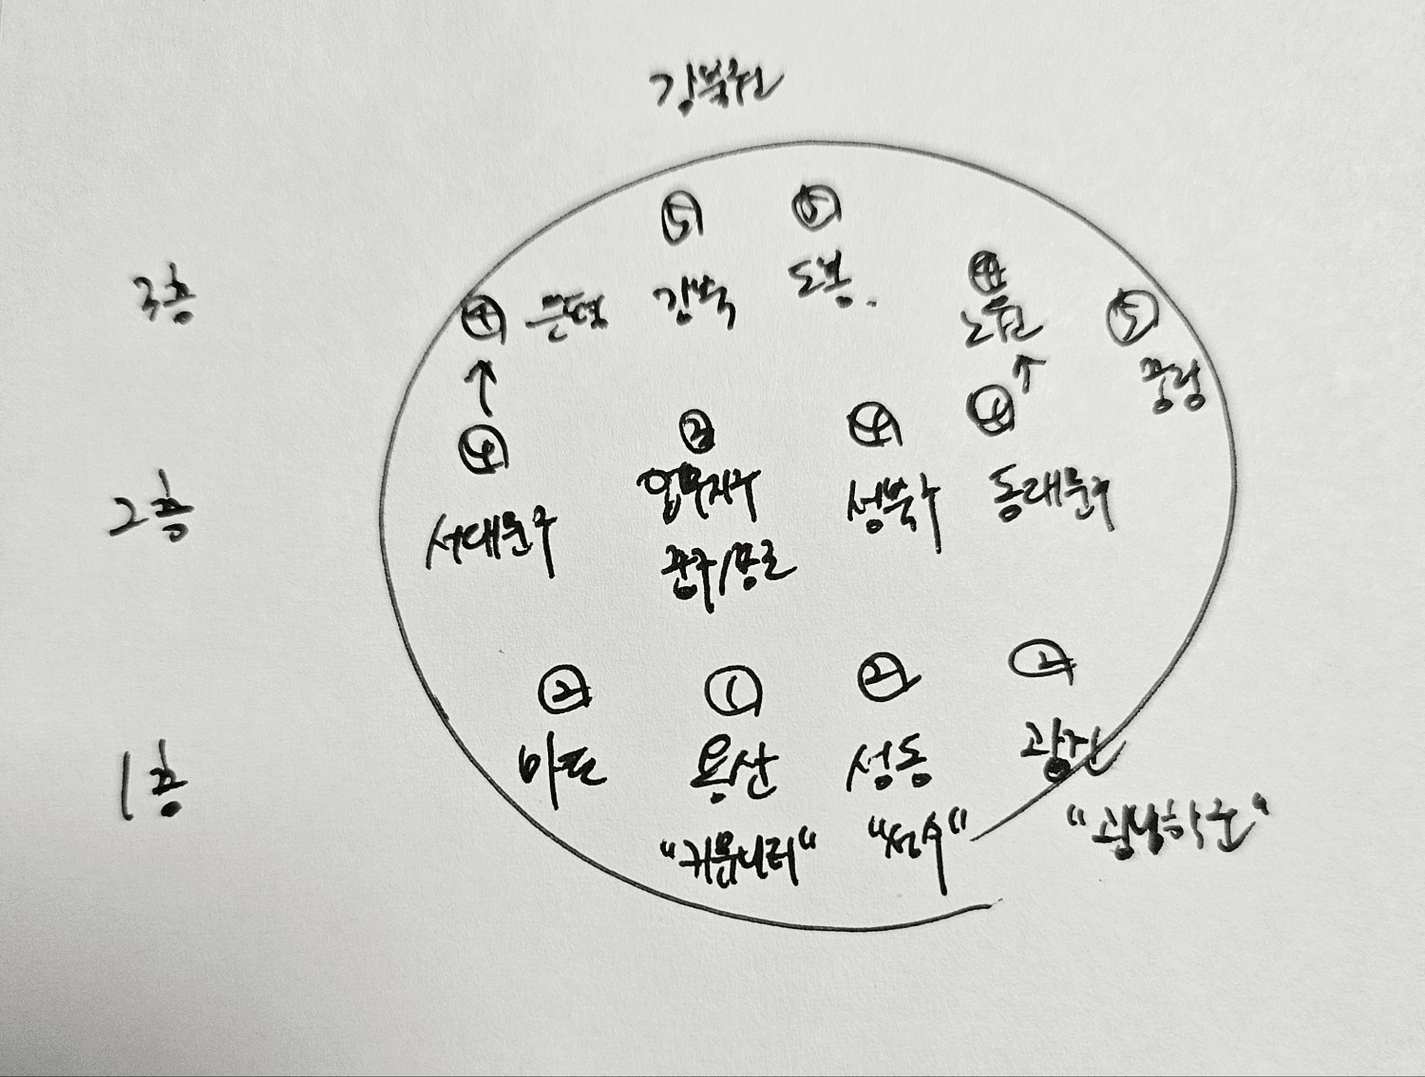 강북권
3층
⑤ ⑤
④ 은평 강북 도봉. ④ 노원 ⑤ 중랑
↑ ↑
2층
④ ④ ④
서대문구 업무지구 성북구 동대문구
중구/종로
1층
② ① ② ②
마포 용산 성동 광진
"커뮤니티" "성수" "광남학군"